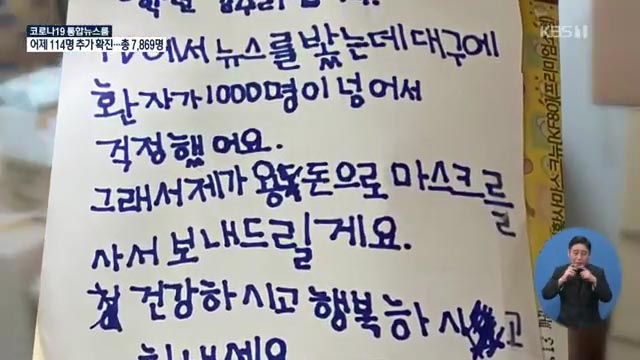 코로나19 통합뉴스룸
어제 114명 추가 확진···총 7,869명
KBS 1
에서 뉴스를 봤는데 대구에
환자가 1000명이 넘어서
걱정했어요.
그래서 제가 용돈으로 마스크를
사서 보내드릴게요.
건강하시고 행복하시고
힘내세요
황사마스크뉴(KF80)(프리미엄